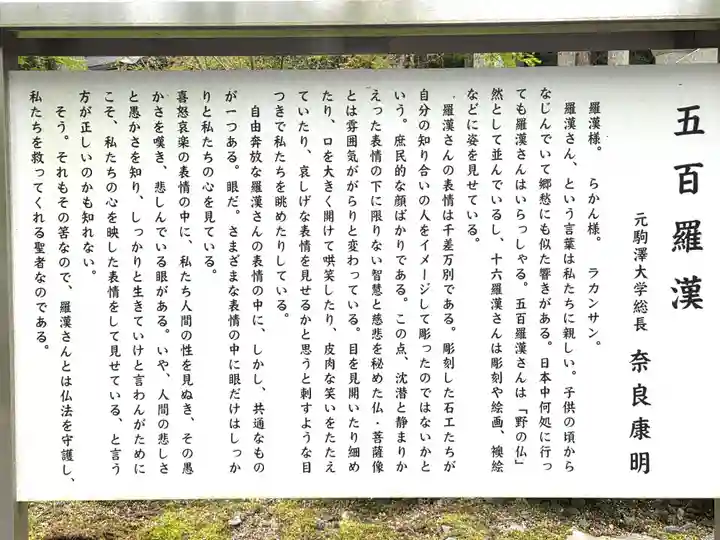 五百羅漢
元駒澤大学総長 奈良康明
羅漢様。 らかん様。 ラカンサン。
羅漢さん、という言葉は私たちに親しい。子供の頃から
なじんでいて郷愁にも似た響きがある。日本中何処に行っ
ても羅漢さんはいらっしゃる。五百羅漢さんは「野の仏」
然として並んでいるし、十六羅漢さんは彫刻や絵画、襖絵
などに姿を見せている。
羅漢さんの表情は千差万別である。彫刻した石工たちが
自分の知り合いの人をイメージして彫ったのではないかと
いう。庶民的な顔ばかりである。この点、沈潜と静まりか
えった表情の下に限りない智慧と慈悲を秘めた仏・菩薩像
とは雰囲気ががらりと変わっている。目を見開いたり細め
たり、口を大きく開けて哄笑したり、皮肉な笑いをたたえ
ていたり、哀しげな表情を見せるかと思うと刺すような目
つきで私たちを眺めたりしている。
自由奔放な羅漢さんの表情の中に、しかし、共通なもの
が一つある。眼だ。さまざまな表情の中に眼だけはしっか
りと私たちの心を見ている。
喜怒哀楽の表情の中に、私たち人間の性を見ぬき、その愚
かさを嘆き、悲しんでいる眼がある。いや、人間の悲しさ
と愚かさを知り、しっかりと生きていけと言わんがために
こそ、私たちの心を映した表情をして見せている、と言う
方が正しいのかも知れない。
そう。それもその筈なので、羅漢さんとは仏法を守護し、
私たちを救ってくれる聖者なのである。